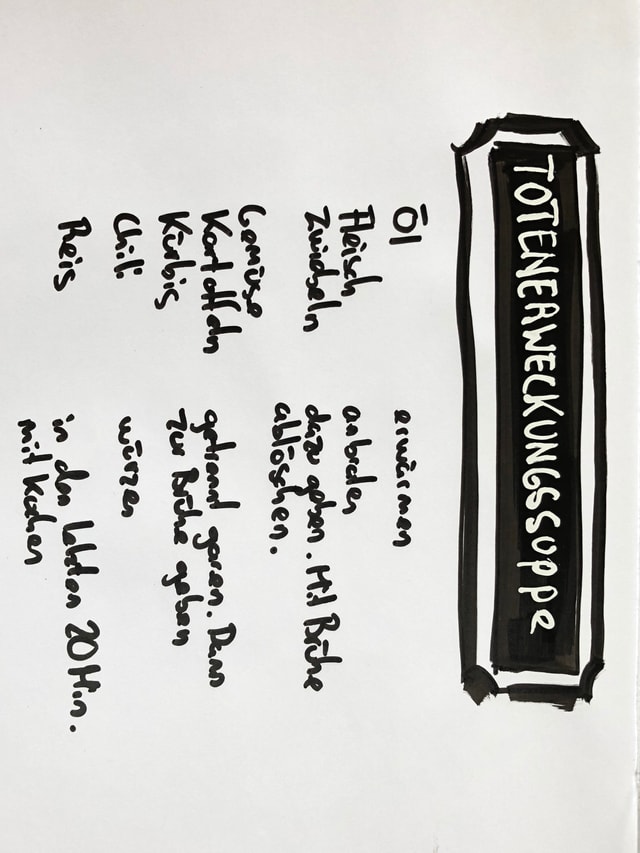 TOTENERWECKUNGSSUPPE
Öl erwärmen
Fleisch anbraten
Zwiebeln dazu geben. Mit Brühe
ablöschen.
Gemüse
Kartoffeln getrennt garen. Dann
Kürbis zur Brühe geben
Chili würzen
Reis in den letzten 20 Min.
mit kochen